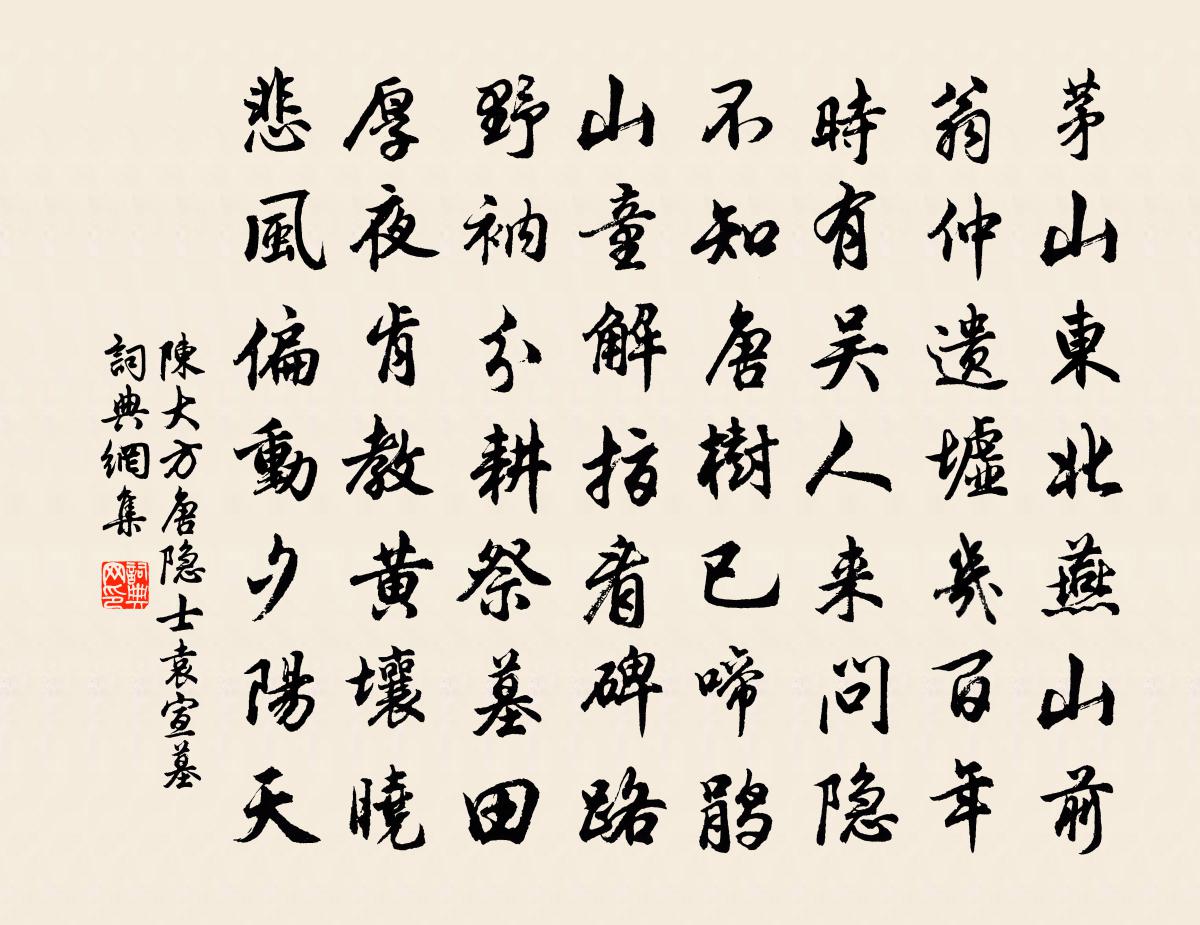 茅山東北燕山前
翁仲遗墟幾百年
時有吴人来問隐
不知唐樹已啼鹃
山童解指看碑路
野衲分耕祭墓田
厚夜肯教黄壤曉
悲風偏動夕陽天
陳大方唐隐士袁宣墓
詞典網集
詞典网印